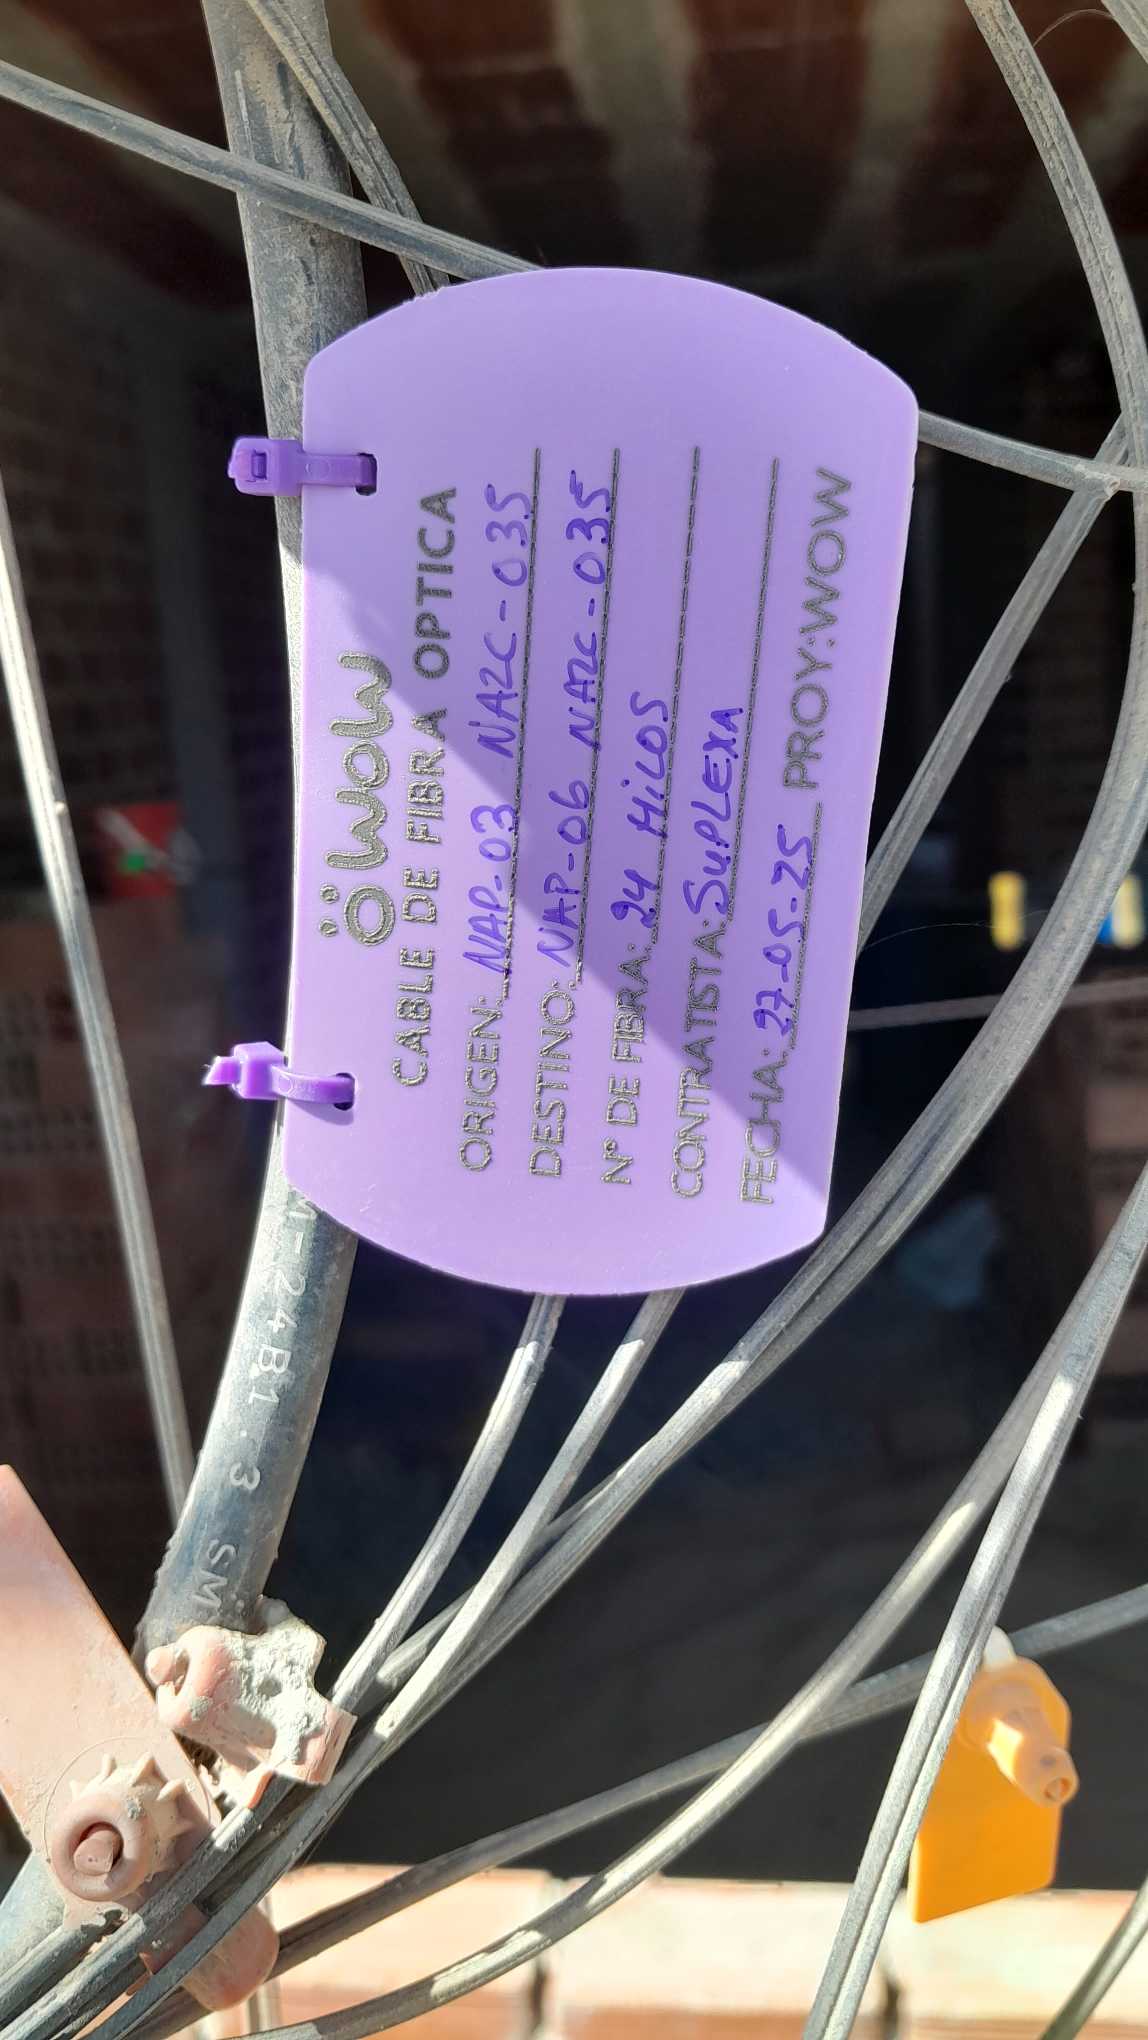 WOW
CABLE DE FIBRA OPTICA
ORIGEN: NAP-03 NA2C-035
DESTINO: NAP-06 NA2C-035
N° DE FIBRA: 24 HiLOS
CONTRATISTA: SuPLEXA
FECHA: 27-05-25 PROY:WOW
M-24B1.3 SM